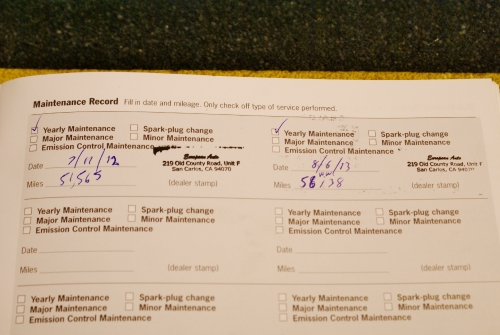 Maintenance Record Fill in date and mileage. Only check off type of service performed.
Yearly Maintenance Spark-plug change
Major Maintenance Minor Maintenance
Emission Control Maintenance
European Auto
219 Old County Road, Unit F
San Carlos, CA 94070
Date 7/11/12
Miles 51,565 (dealer stamp)
Yearly Maintenance Spark-plug change
Major Maintenance Minor Maintenance
Emission Control Maintenance
European Auto
219 Old County Road, Unit F
San Carlos, CA 94070
Date 8/6/13
Miles 58,138 (dealer stamp)
Yearly Maintenance Spark-plug change
Major Maintenance Minor Maintenance
Emission Control Maintenance
Date
Miles (dealer stamp)
Yearly Maintenance Spark-plug change
Major Maintenance Minor Maintenance
Emission Control Maintenance
Date
Miles (dealer stamp)
Yearly Maintenance Spark-plug change
Major Maintenance Minor Maintenance
Emission Control Maintenance
Yearly Maintenance Spark-plug change
Major Maintenance Minor Maintenance
Emission Control Maintenance